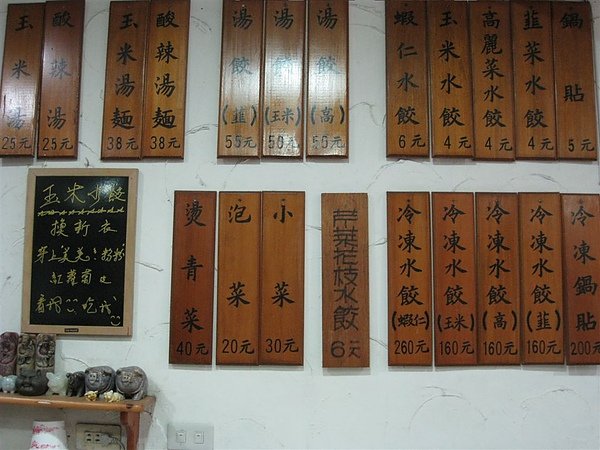 玉米湯 25元
酸辣湯 25元
玉米湯麵 38元
酸辣湯麵 38元
湯餃(韮) 55元
湯餃(玉米) 50元
湯餃(高) 55元
蝦仁水餃 6元
玉米水餃 4元
高麗菜水餃 4元
韮菜水餃 4元
鍋貼 5元
玉米水餃
換新衣
穿上美美
紅蘿蔔
看我 吃我
燙青菜 40元
泡菜 20元
小菜 30元
芹菜花枝水餃 6元
冷凍水餃(蝦仁) 260元
冷凍水餃(玉米) 160元
冷凍水餃(高) 160元
冷凍水餃(韮) 160元
冷凍鍋貼 200元